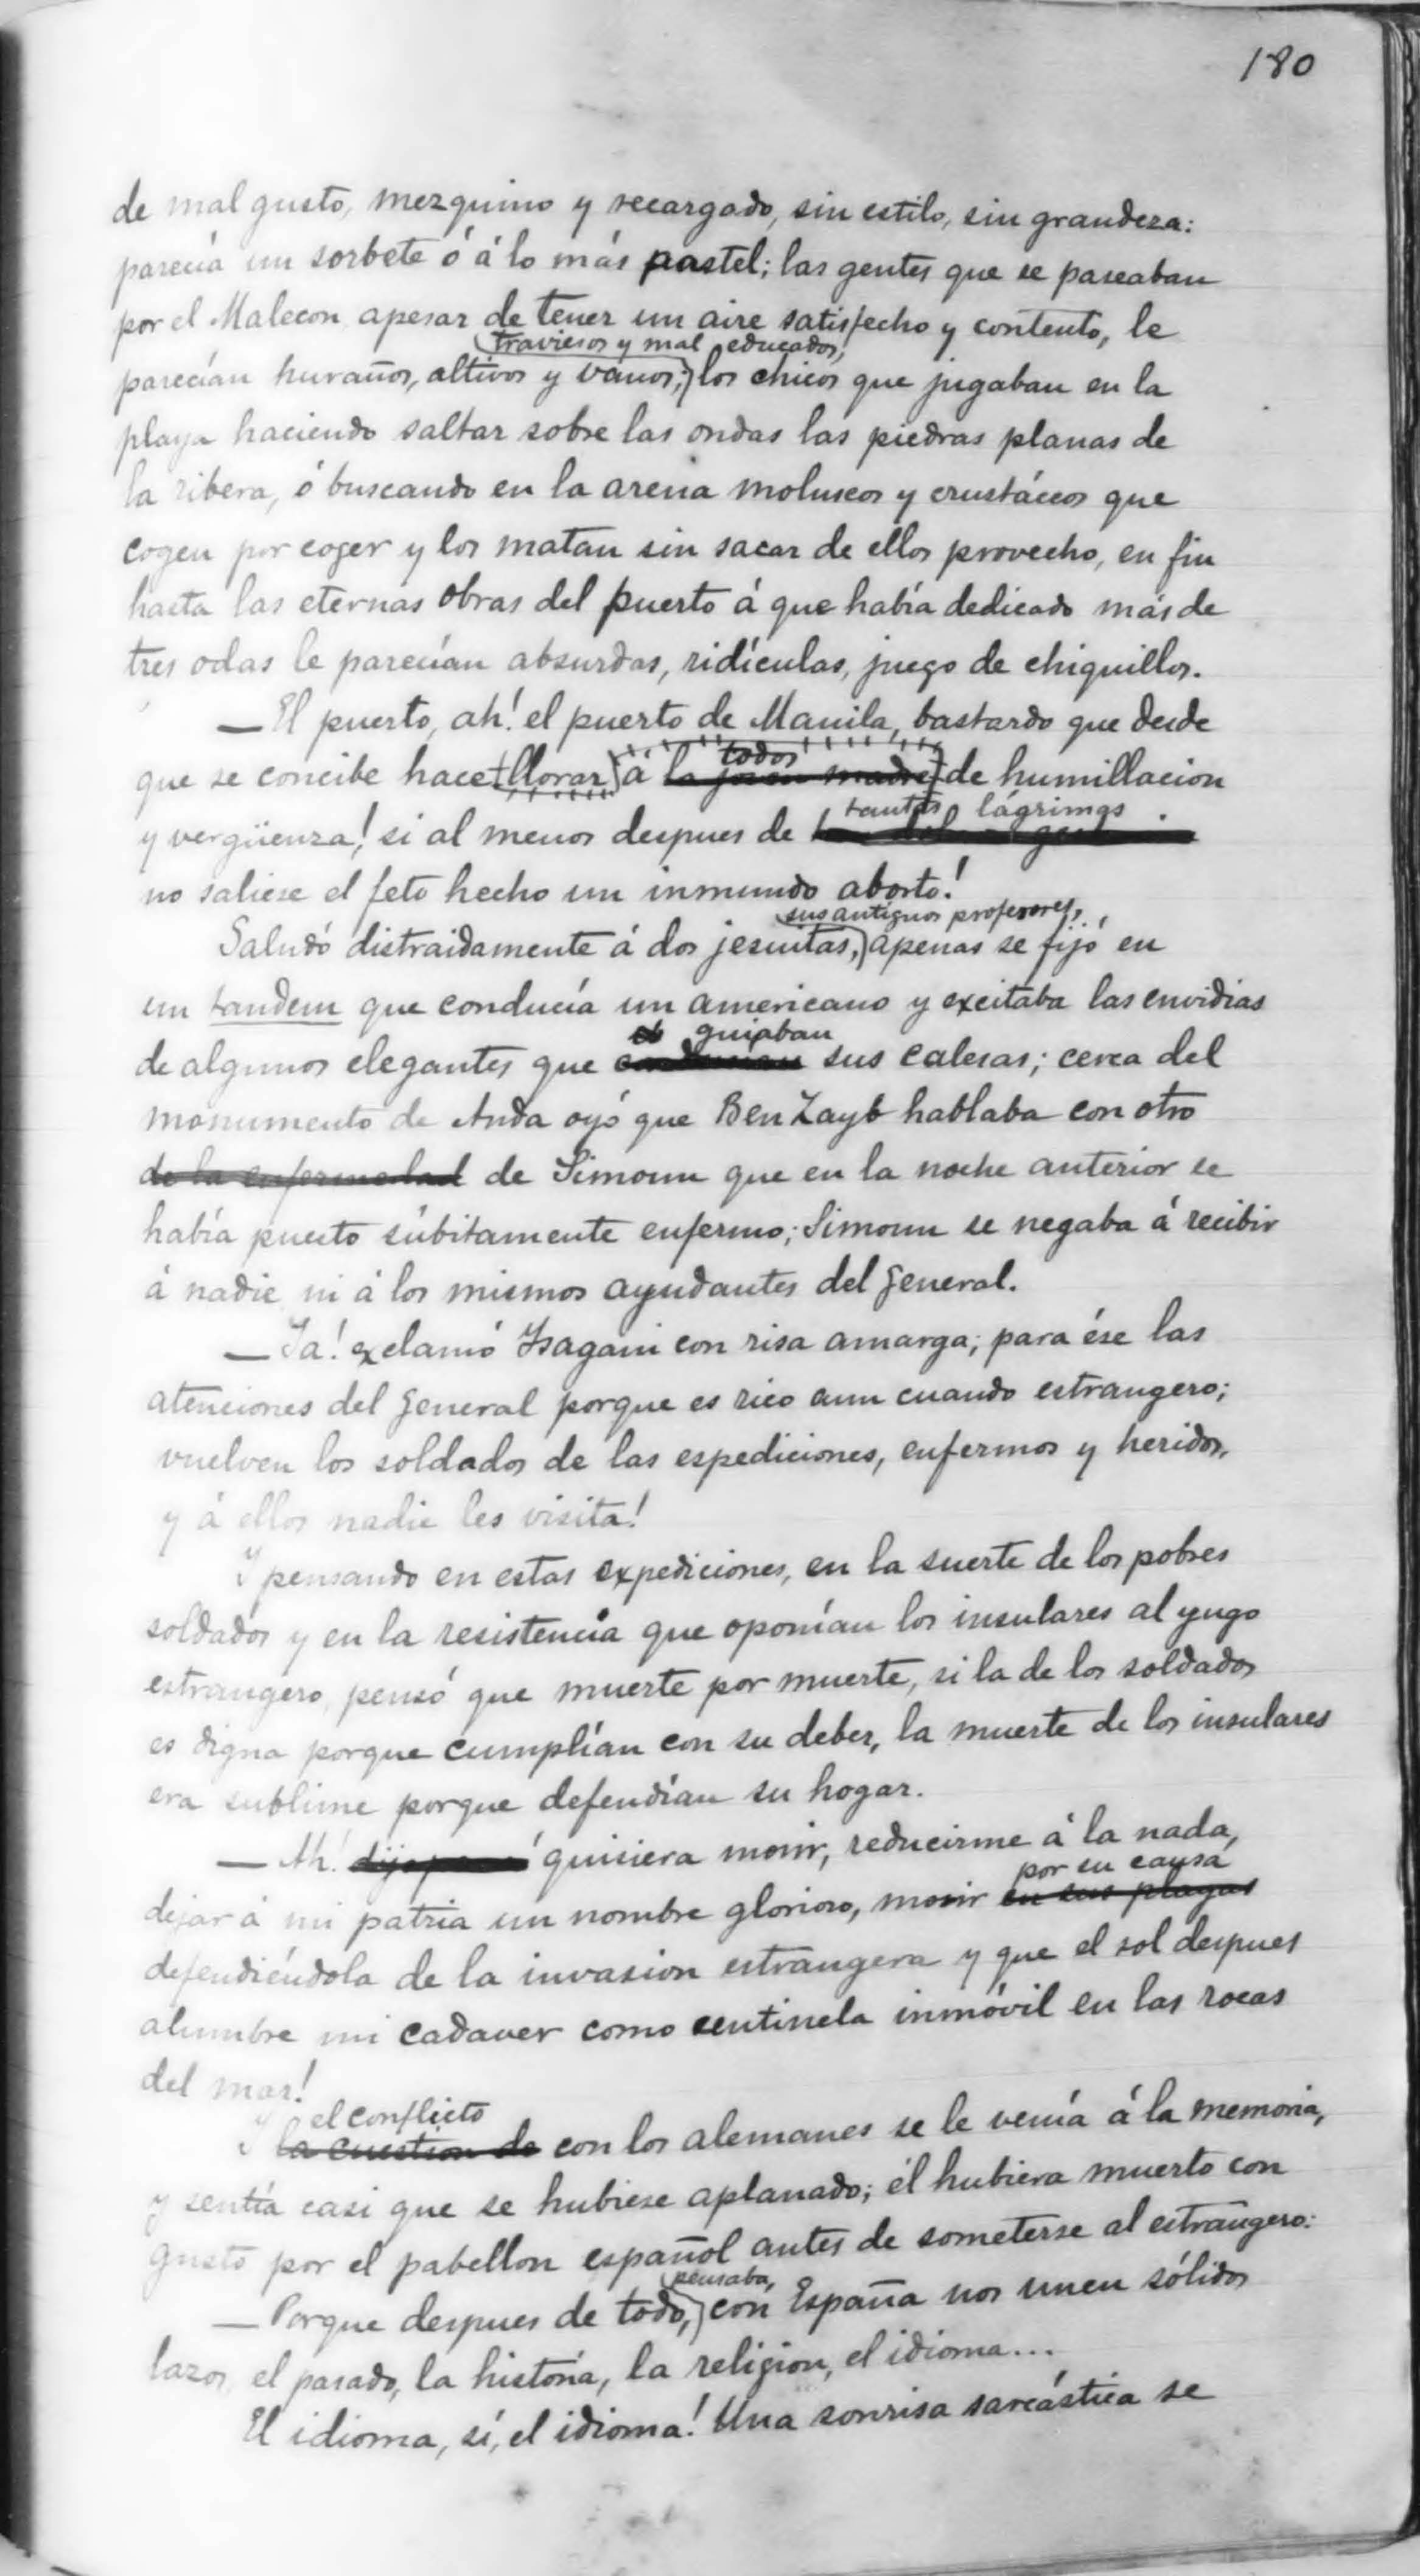 180
de mal gusto, mezquino y recargado, sin estilo, sin grandeza:
parecía un sorbete ó á lo más pastel; las gentes que se paseaban
por el Malecon apesar de tener un aire satisfecho y contento, le
traviesos y mal educados,
parecían huraños, altivos y vanos; los chicos que jugaban en la
playa haciendo saltar sobre las ondas las piedras planas de
la ribera, ó buscando en la arena moluscos y crustáceos que
cogen por coger y los matan sin sacar de ellos provecho, en fin
hasta las eternas obras del puerto á que había dedicado más de
tres odas le parecían absurdas, ridículas, juego de chiquillos.
— El puerto, ah! el puerto de Manila, bastardo que desde
todos
que se concibe hace llorar á la joven madre de humillacion
tantas lágrimas
y vergüenza! si al menos despues de
no saliese el feto hecho un inmundo aborto!
sus antiguos profesores,
Saludó distraidamente á dos jesuitas, apenas se fijó en
un tandem que conducía un americano y excitaba las envidias
guiaban
de algunos elegantes que conducian sus calesas; cerca del
monumento de Anda oyó que Ben Zayb hablaba con otro
de la enfermedad de Simoun que en la noche anterior se
había puesto súbitamente enfermo; Simoun se negaba á recibir
á nadie ni á los mismos ayudantes del general.
— Ja! exclamó Isagani con risa amarga; para ése las
atenciones del general porque es rico aun cuando estrangero;
vuelven los soldados de las espediciones, enfermos y heridos,
y á ellos nadie les visita!
Y pensando en estas expediciones, en la suerte de los pobres
soldados y en la resistencia que oponían los insulares al yugo
estrangero, pensó que muerte por muerte, si la de los soldados
es digna porque cumplían con su deber, la muerte de los insulares
era sublime porque defendían su hogar.
— Ah! quisiera morir, reducirme á la nada,
por su causa
dejar á mi patria un nombre glorioso, morir en sus playas
defendiéndola de la invasion estrangera y que el sol despues
alumbre mi cadaver como centinela inmóvil en las rocas
del mar!
el conflicto
Y la cuestion de con los alemanes se le venía á la memoria,
y sentía casi que se hubiese aplanado; él hubiera muerto con
gusto por el pabellon español antes de someterse al estrangero:
pensaba,
— Porque despues de todo, con España nos unen sólidos
lazos, el pasado, la historia, la religion, el idioma...
El idioma, sí, el idioma! Una sonrisa sarcástica se